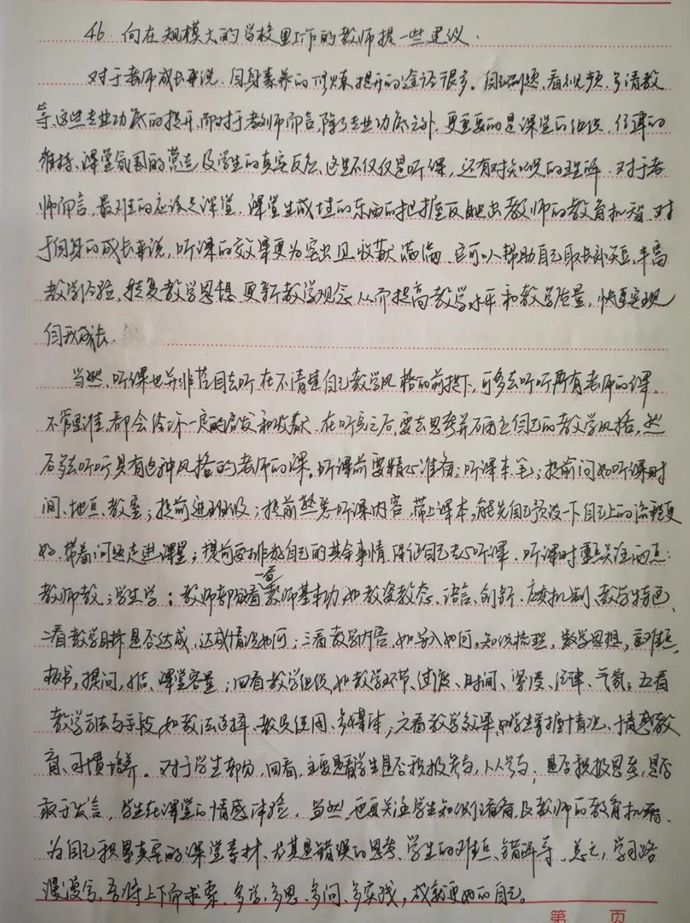 46 向在规模大的学校里工作的教师提一些建议.
对于老师成长来说，自身素养的修炼提升的途径很多。自己刷题，看视频，多请教
等，这些专业功底的提升，而对于教师而言，除了专业功底之外，更重要的是课堂的组织，纪律的
维持、课堂氛围的营造，及学生的真实反应，这些不仅仅是听课，还有对知识的理解．对于老
师而言，最难的应该是课堂，课堂生成性的东西的把握反映出教师的教育机智．对
于自身的成长来说，听课的效率更为突出且收获满满．它可以帮助自己取长补短，丰富
教学经验，转变教学思想，更新教学观念，从而提高教学水平和教学质量，快速实现
自我成长．
当然，听课也并非盲目去听，在不清楚自己教学风格的前提下，可多去听听所有老师的课．
不管是谁，都会给你一定的启发和收获．在听完之后，要去思考并确立自己的教学风格，然
后多去听听具有这种风格的老师的课。听课前要精心准备；听课本、笔；提前问好听课时
间、地点、教室；提前进班级；提前熟悉听课内容，带上课本，能先自己预设一下自己上的流程更
好，带着问题走进课堂；提前安排好自己的其余事情，保证自己去听课．听课时重点关注两点：
教师教；学生学；教师部分一看教师基本功，如教姿教态、语言、创新、应变机制、教学特色．
二看教学目标是否达成，达成情况如何；三看教学内容，如导入如何，知识梳理，数学思想，重难点，
板书，提问，小结、课堂容量；四看教学组织，如教学环节、过渡、时间、密度、纪律、气氛；五看
教学方法与手段，如教法选择、教具使用、多媒体；六看教学效果，如学生掌握情况、情感教
育、习惯培养。对于学生部分，回看，主要是看学生是否积极参与，人人参与，是否积极思考，是否
敢于发言，学生在课堂的情感体验．当然，也要关注学生知识储备及教师的教育机智，
为自己积累真实的课堂素材、尤其是错误的思考、学生的难点、错解等．总之，学习路
漫漫兮，吾将上下而求索，多学、多思、多问、多实践，成就更好的自己。
第 页